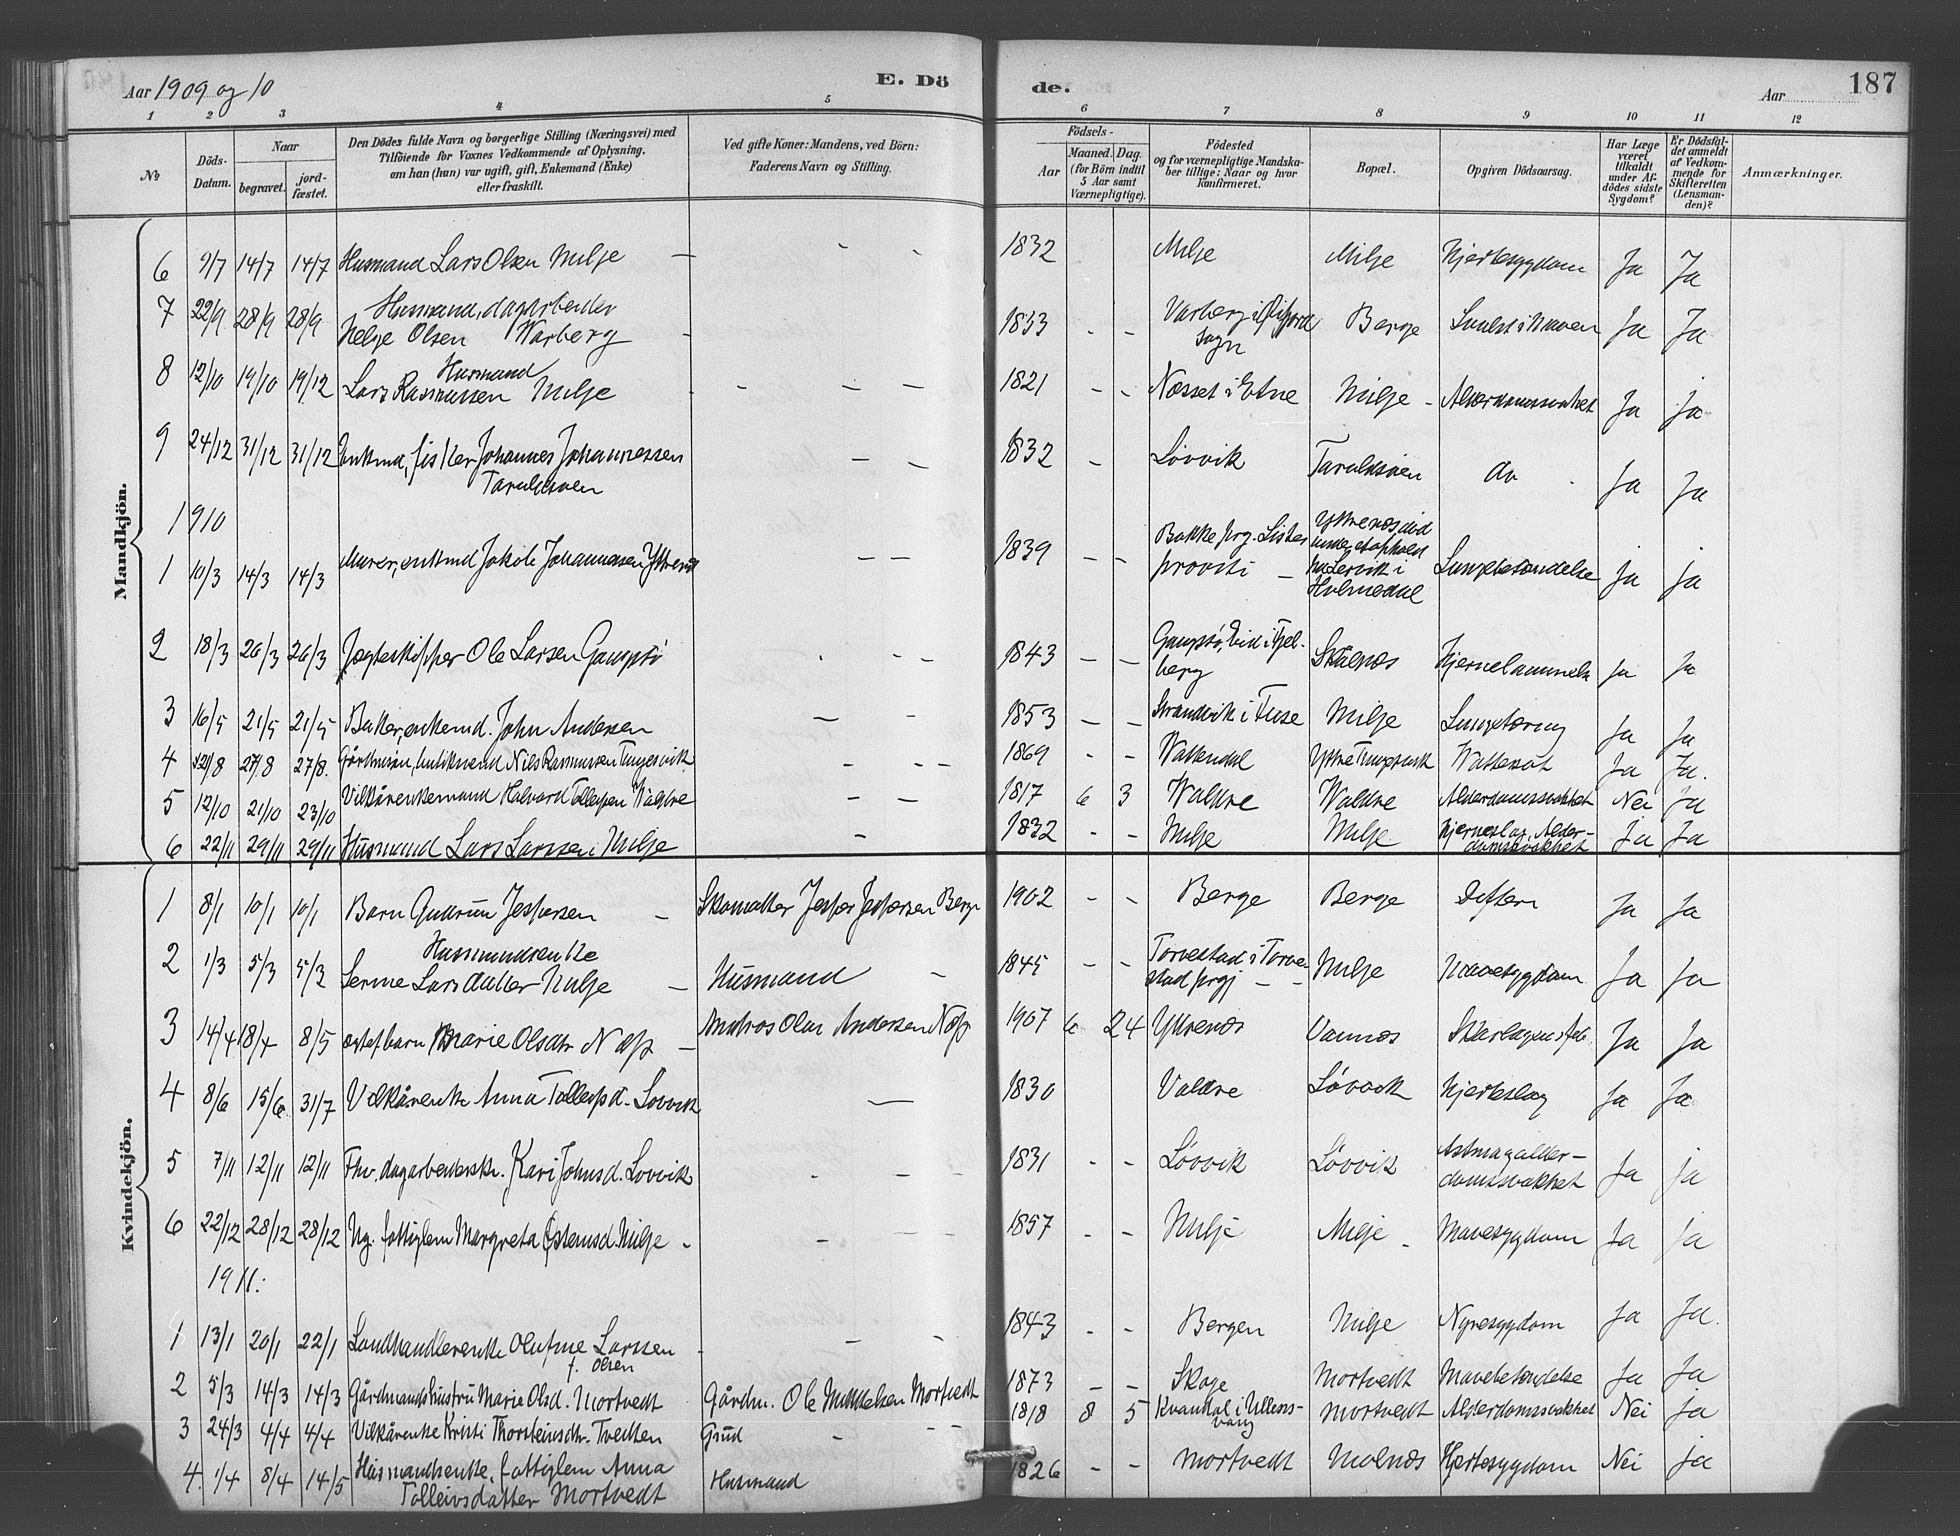 Aar 1909 og 10
E. Dö
de.
Aar
187
1 2 3 4 5 6 7 8 9 10 11 12
No
Döds-Datum.
Naar
begravet.
jord-fæstet.
Den Dödes fulde Navn og borgerlige Stilling (Næringsvei) med
Tilföiende for Voxnes Vedkommende af Oplysning.
om han (hun) var ugift, gift, Enkemand (Enke)
eller fraskilt.
Ved gifte Koner: Mandens, ved Börn:
Faderens Navn og Stilling.
Födsels-
Aar
Maaned. Dag.
(for Börn indtil
5 Aar samt
Værnepligtige).
Födested
og for værnepligtige Mandska-
ber tillige: Naar og hvor
konfirmeret.
Bopæl.
Opgiven Dödsaarsag.
Har Læge
været
tilkaldt
under Af-
dödes sidste
Sygdom?
Er Dödsfal-
det anmeldt
af Vedkom-
mende for
Skifteretten
(Lensman-
den)?
Anmærkninger.
Mandkjön.
6 9/7 14/7 14/7 Husmand Lars Olsen Milje — 1832 Milje Milje Hjertesygdom Ja Ja
7 22/9 28/9 28/9 Husmand, dagarbeider
Helge Olsen Warberg - 1833 Varberg i Sogn Berge Ja Ja
8 12/10 19/10 19/12 Husmand
Lars Rasmussen Milje 1821 - - Næsset i Etne Milje - Alderdomssvakhet Ja ja
9 24/12 31/12 31/12 Enkmd, fisker Johannes Johannessen
1832 - Løvvik do Ja Ja
1910
1 10/3 14/3 14/3 Murer, enkmd Jakob Johannessen Yttrenes 1839 - - Bakke prg. Lister
provsti — Yttrenes død
under ophold
Lervik i
Holmedal Lungebetændelse Ja Ja
2 18/3 26/3 26/3 Jægteskipper Ole Larsen 1843 — — Eid i Fjel-
berg Skålnes Hjernelammelse Ja Ja
3 16/5 21/5 21/5 Baker, enkemd. John Andersen 1853 — — Strandvik i Fuse Milje Lungetæring Ja Ja
4 12/8 27/8 27/8. Gårdmann, Nils Rasmussen 1869 - - Vattersot Ja Ja.
5 12/10 21/10 23/10 Vilkårenkemand Halvard Tollefsen Waldre 1817 6 3 Waldre Waldre Alderdomssvakhet Nei Ja
6 22/11 29/11 29/11 Husmand Lars Larsen Milje 1832 - - Milje Milje Hjerneslag, Alder-
domssvakhet Ja Ja
Kvindekjön.
1 8/1 10/1 10/1 Barn Gudrun Jespersen — Skomakker Jesper Jespersen Berge 1902 - - Berge Berge Difteri Ja Ja
2 1/3 5/3 5/3 Husmandsenke
Serine Larsdatter Milje — Husmand — 1845 - - Torvestad i Torve-
stad prgj — - Milje Mavesygdom Ja Ja
3 14/4 18/4 8/5 Marie Olsdtr Næs — Andersen Næs 1907 6 24 Yttrenes Vannes Ja Ja
4 8/6 15/6 31/7 Vilkårenke Anna Tollefsd. Løvvik — 1830 Valdre Løvvik Hjerteslag Ja Ja
5 7/11 12/11 12/11 Fhv. dagarbeiderske. Kari Johnsd. Løvvik 1831 - - Løvvik Løvvik Astma, alder-
domssvakhet Ja ja
6 22/12 28/12 28/12 Ug. fattiglem Margreta Østensd. Milje - 1857 - - Milje Milje - Mavesygdom Ja Ja
1911:
1 13/1 20/1 22/1 Landhandlerenke Olufine Larsen
f. Olsen 1843 - - Bergen Milje Nyresygdom Ja Ja.
2 5/3 14/3 14/3 Gårdmandshustru Marie Olsd. Mortvedt Gårdm. Ole Mikkelsen Mortvedt 1873 — — Skage Mortvedt Mavebetændelse Ja Ja
3 24/3 4/4 4/4 Vilkårenke Kristi Thorsteinsdtr. Tvedten Grud — 1818 8 5 Kvandal i Ullens-
vang Mortvedt Alderdomssvakhet Nei Ja
4. 1/4 8/4 14/5 Husmandsenke, fattiglem Anna
Tolleivsdatter Mortvedt Husmand 1826 - - Mortvedt Molnes Hjertesygdom Nei Ja